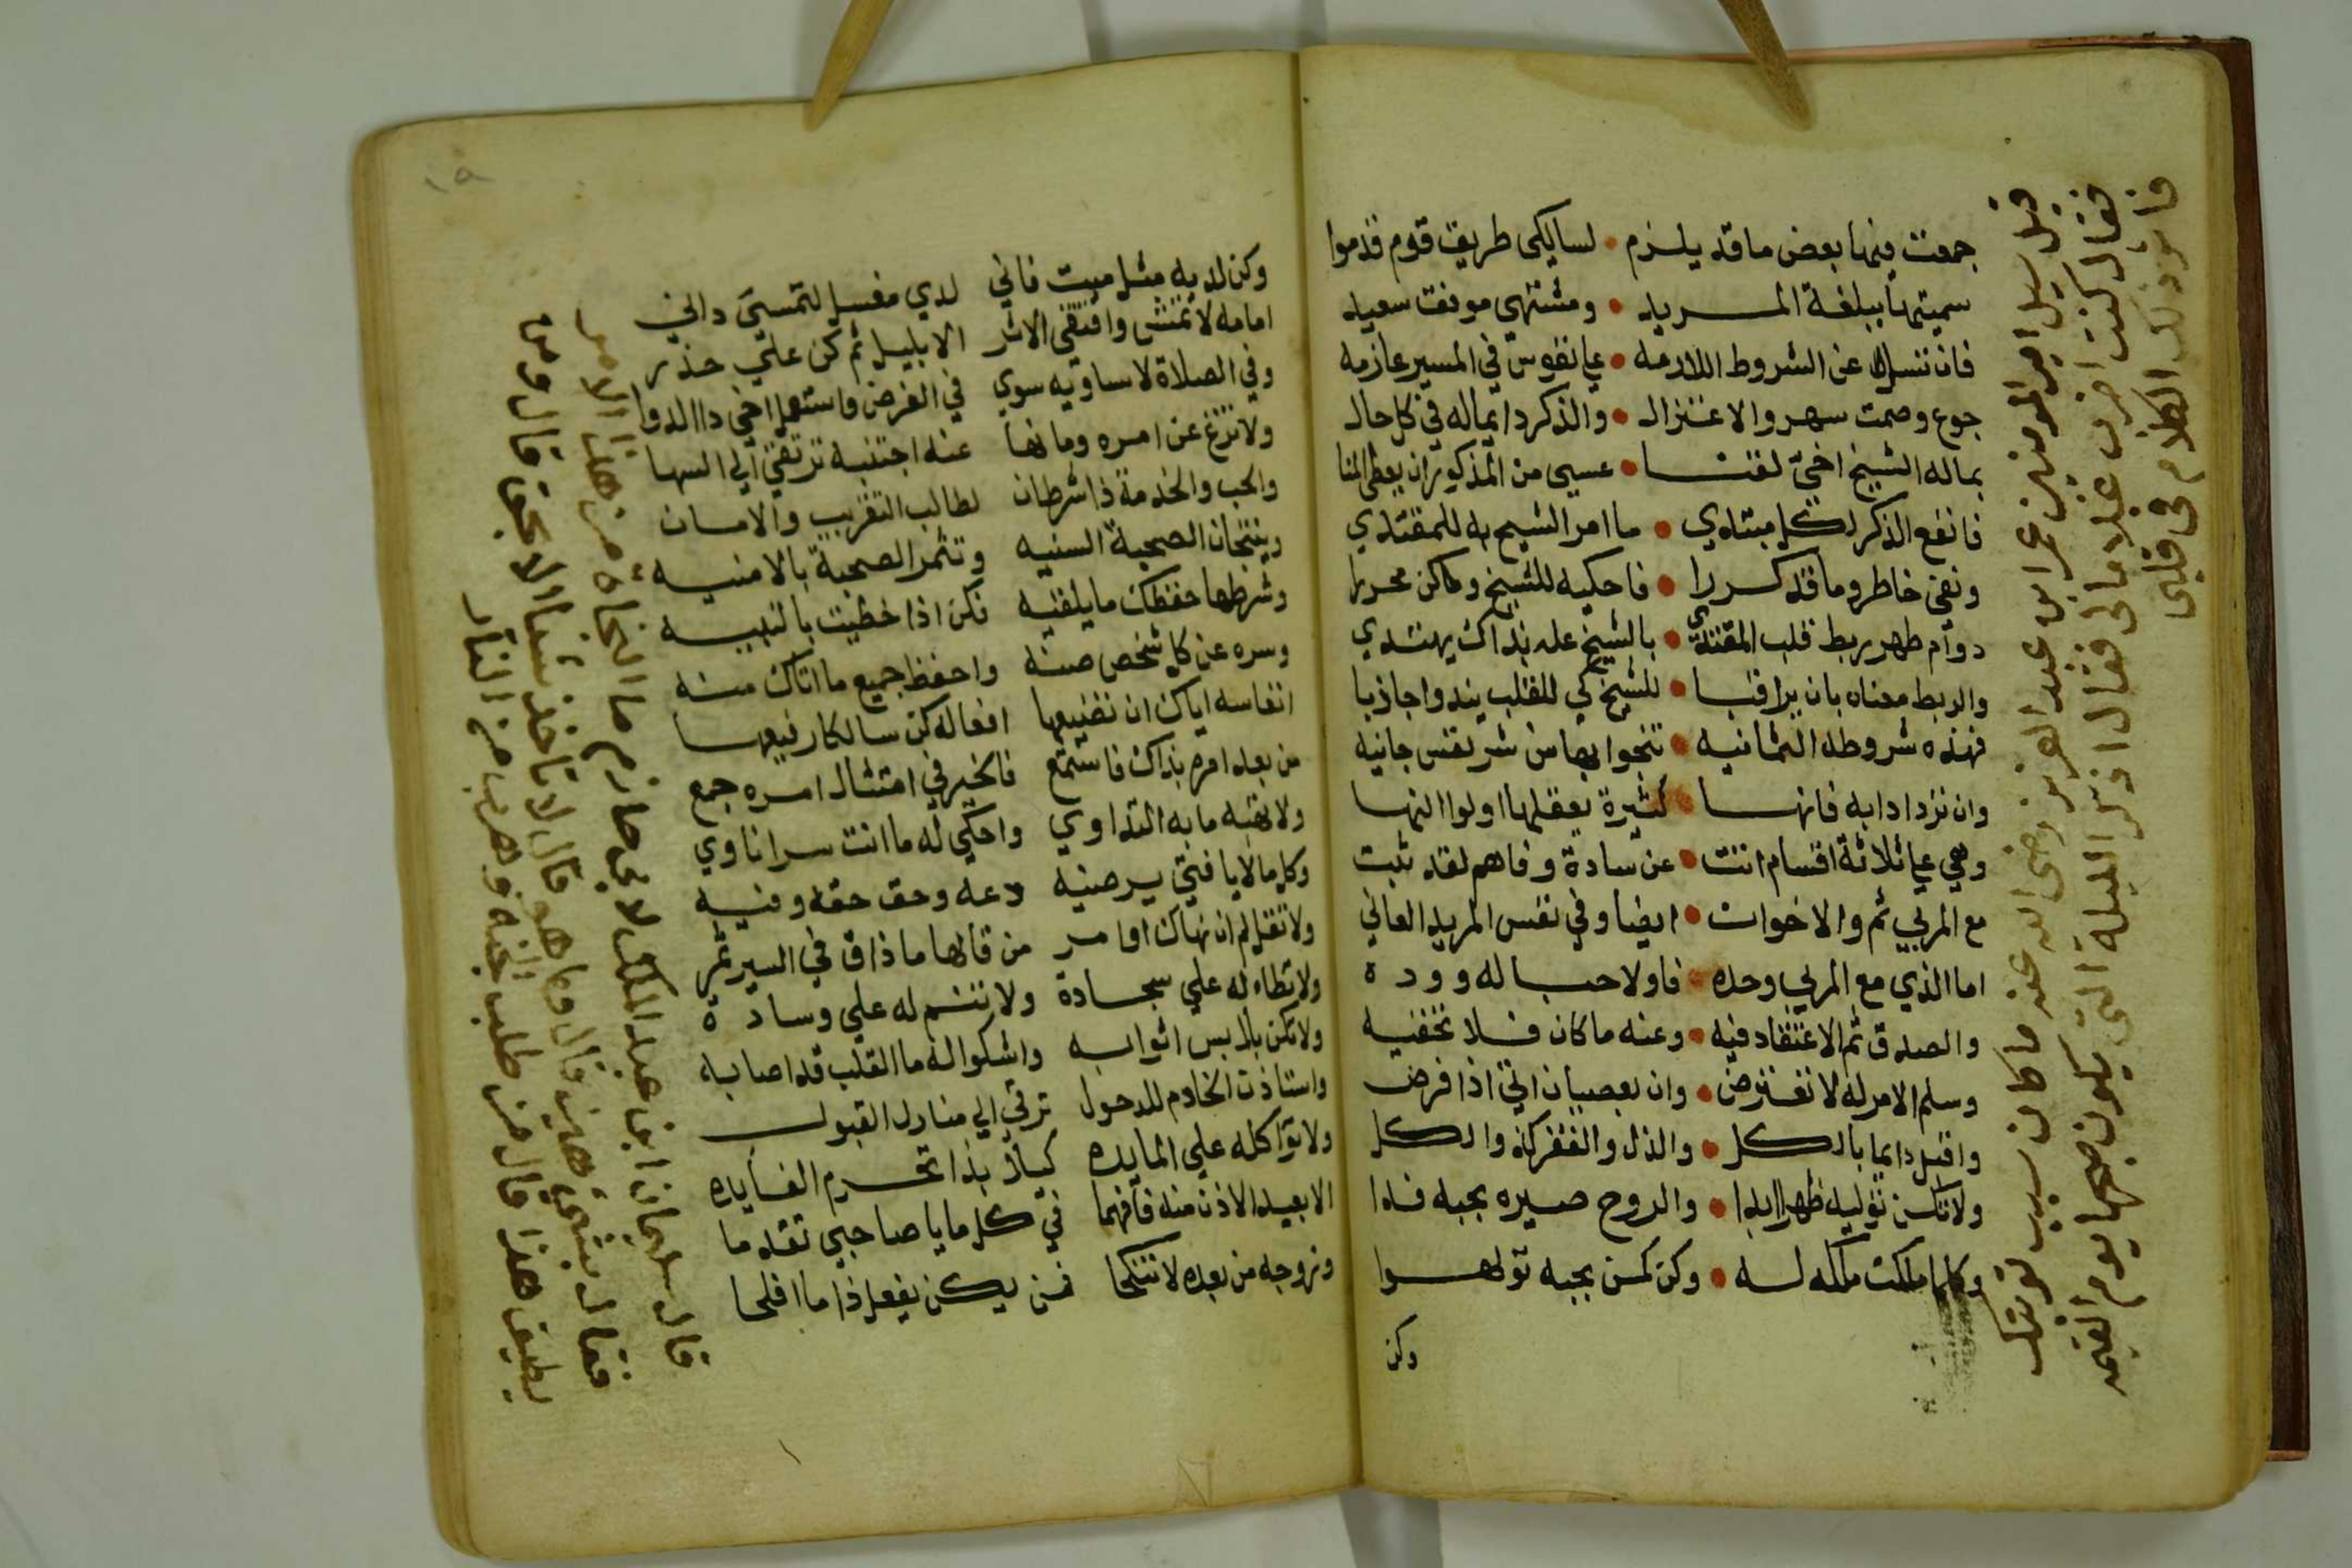 جمعت فيها بعض ما قد يلزم • لسالكي طريق قوم قدموا
سميتها ببلغة المريد • ومشتهى موفق سعيد
فان تسل عن الشروط اللازمه • علي نفوس في المسير عازمه
جوع وصمت سهر والاعتزال • والذكر دايما له في كل حال
بما له الشيخ اخي لقنا • عسي من المذكور ان يعطى المنا
فانفع الذكر لكل مبتدي • ما امر الشيخ به للمقتدي
ونفي خاطر وما قد كررا • فاحكيه للشيخ وكن محررا
دوام طهر ربط قلب المقتدي • بالشيخ عله بذاك يهتدي
والربط معناه بان يراقبا • للشيخ كي للقلب يندو اجاذبا
فهذه شروطه الثمانيه • تنجوا بها من شر نفس جانيه
وان تزد ادابه فانها • كثيرة يعقلها اولوا النها
وهي علي ثلاثة اقسام اتت • عن سادة وفاهم لقد ثبت
مع المربي ثم والاخوان • ايضا وفي نفس المريد العاني
اما الذي مع المربي وحده • فاولا حبا له ووده
والصدق ثم الاعتقاد فيه • وعنه ما كان فلا تخفيه
وسلم الامر له لا تعترض • وان بعصيان اتي اذا فرض
واقبل دايما بالكل • والذل والفقر كذ والكل
ولا تكن توليه ظهرا ابدا • والروح صيره بحبه فدا
وكلما ملكت ملكه له • وكن كمن بحبه تولهوا
وكن
قيل سيل امير المومنين عمر ابن عبد العزيز رضي الله عنه ما كان سبب توبتك
فقال كنت اضرب غلاما لي فقال اذكر الليلة التي يكون صبحها يوم القيمه
فاثر ذلك الكلام في قلبي
وكن لديه مثل ميت فاني لدي مغسل لتمسي داني
امامه لا تمش واقتفي الاثر الا بليل ثم كن علي حذر
وفي الصلاة لا تساويه سوي في الفرض واستعمل اخي دا الدوا
ولا تزغ عن امره وما نها عنه اجتنبه ترتقي الي السها
والحب والخدمة ذا شرطان لطالب التقريب والامان
وينتجان الصحبة السنيه وتثمر الصحبة بالامنيه
وشرطها حفظك ما يلقيه فكن اذا حظيت بالنبيه
وسره عن كل شخص صنه واحفظ جميع ما اتاك منه
انفاسه اياك ان تضيعها افعاله كن سالكا رفيعها
من بعد امره بذاك فاستمع فالخير في امتثال امره جمع
ولا تقبه ما به التداوي واحكي له ما انت سرا ناوي
وكل ما لا يا فتي يرضيه دعه وحق حقه وفيه
ولا تقل لم ان نهاك اوامر من قالها ما ذاق في السير ثمر
ولا تطاء له علي سجادة ولا تنم له علي وسادة
ولا تكن بلابس اثوابه واشكوا له ما القلب قد اصابه
واستاذن الخادم للدخول ترقي الي منازل القبول
ولا تؤاكله علي المايده كيلا بذا تحرم الفايده
الا بعيد الاذن منه فافهما في كل ما يا صاحبي تقدما
وزوجه من بعده لا تنكحا فمن يكن يفعل ذا ما افلحا
قال سليمان ابن عبد الملك لابي حازم ما النجاة من هذا الامر
فقال بشيء هين قال وما هو قال لا تاخذ شيئا الا بحق قال ومن
يطيق هذا قال من طلب الجنة وهرب من النار
١٥